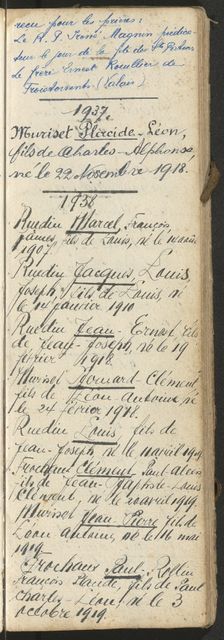 reçu pour les prières :
Le R. P. René Magnin prédica-
teur le jour de la fête des Sts Patrons
Le frère Ernest Rouiller de
Troistorrents (Valais)
1937
Muriset Placide-Léon,
fils de Charles-Alphonse,
né le 22 novembre 1918.
1938
Ruedin Marcel, François
James, fils de Louis, né le 10
1907.
Ruedin Jacques, Louis,
Joseph, fils de Louis, né
le 14 janvier 1910
Ruedin Jean-Ernest, fils
de Jean-Joseph, né le 19
février 1918.
Muriset Bernard-Clément
fils de Léon Antoine né
le 24 février 1918.
Ruedin Louis fils de
Jean-Joseph né le 11 avril 1919
Frochaux Clément Paul Alexis
fils de Jean-Baptiste-Louis
Clément, né le 20 avril 1919
Muriset Jean-Pierre fils de
Léon Antoine, né le 16 mai
1919.
Frochaux Paul-
François Placide, fils de Paul
Charles-Léon né le 3
octobre 1919.